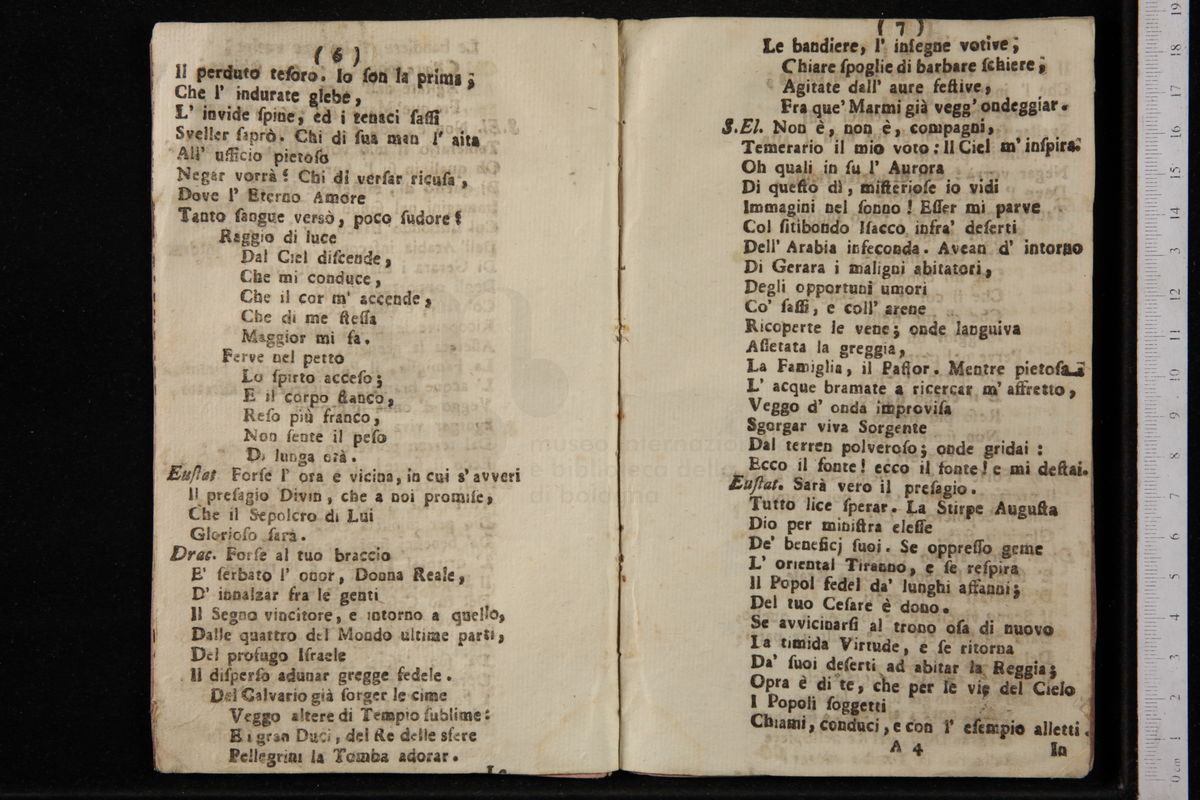 ( 6 )
Il perduto teſoro. Io ſon la prima;
Che l' indurate glebe,
L' invide ſpine, ed i tenaci ſaſſi
Sveller ſaprò. Chi di ſua man l' aita
All' ufficio pietoſo
Negar vorrà? Chi di verſar ricuſa,
Dove l' Eterno Amore
Tanto ſangue versò, poco ſudore?
Raggio di luce
Dal Ciel diſcende,
Che mi conduce,
Che il cor m' accende,
Che di me ſteſſa
Maggior mi fa.
Ferve nel petto
Lo ſpirto acceſo;
E il corpo ſtanco,
Reſo più franco,
Non ſente il peſo
Di lunga età.
Euſtat Forſe l' ora e vicina, in cui s' avveri
Il preſagio Divin, che a noi promiſe,
Che il Sepolcro di Lui
Glorioſo ſarà.
Drac. Forſe al tuo braccio
E' ſerbato l' onor, Donna Reale,
D' innalzar fra le genti
Il Segno vincitore, e intorno a quello,
Dalle quattro del Mondo ultime parti,
Del profugo Iſraele
Il diſperſo adunar gregge fedele.
Del Calvario già ſorger le cime
Veggo altere di Tempio ſublime:
E i gran Duci, del Re delle sfere
Pellegrini la Tomba adorar.
Le
( 7 )
Le bandiere, l' inſegne votive;
Chiare ſpoglie di barbare ſchiere;
Agitate dall' aure feſtive,
Fra que' Marmi già vegg' ondeggiar.
S.El. Non è, non è, compagni,
Temerario il mio voto: Il Ciel m' inſpira.
Oh quali in ſu l' Aurora
Di queſto dì, miſterioſe io vidi
Immagini nel ſonno! Eſſer mi parve
Col ſitibondo Iſacco infra' deſerti
Dell' Arabia infeconda. Avean d' intorno
Di Gerara i maligni abitatori,
Degli opportuni umori
Co' ſaſſi, e coll' arene
Ricoperte le vene; onde languiva
Aſſetata la greggia,
La Famiglia, il Paſtor. Mentre pietoſa
L' acque bramate a ricercar m' affretto,
Veggo d' onda improviſa
Sgorgar viva Sorgente
Dal terren polveroſo; onde gridai:
Ecco il fonte! ecco il fonte! e mi deſtai.
Euſtat. Sarà vero il preſagio.
Tutto lice ſperar. La Stirpe Auguſta
Dio per miniſtra eleſſe
De' beneficj ſuoi. Se oppreſſo geme
L' oriental Tiranno, e ſe reſpira
Il Popol fedel da' lunghi affanni;
Del tuo Ceſare è dono.
Se avvicinarſi al trono oſa di nuovo
La timida Virtude, e ſe ritorna
Da' ſuoi deſerti ad abitar la Reggia;
Opra è di te, che per le vie del Cielo
I Popoli ſoggetti
Chiami, conduci, e con l' eſempio alletti.
A 4
In